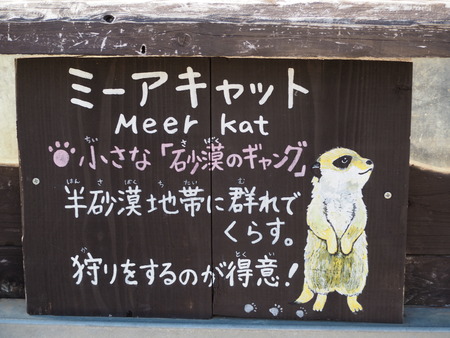 ミーアキャット
Meer kat
小さな「砂漠のギャング」
半砂漠地帯に群れで
くらす。
狩りをするのが得意!